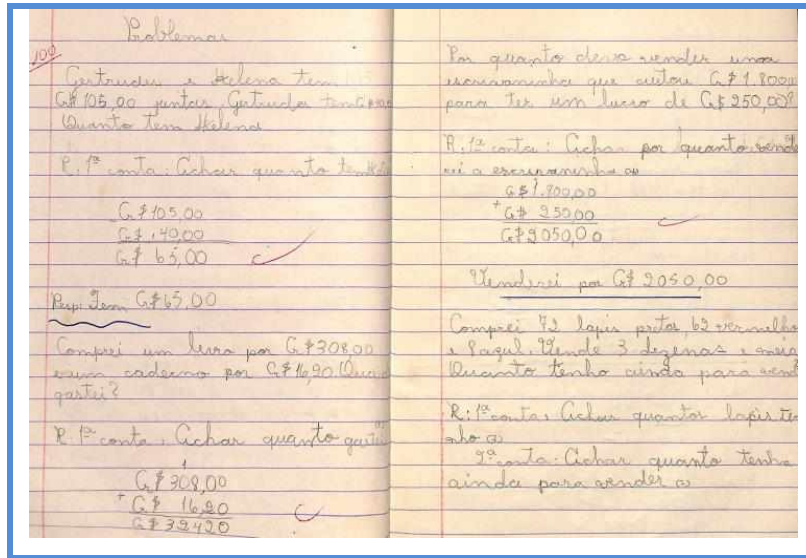 Problemas
100
Gertrudes e Helena tem
Cr$ 105,00 juntas. Gertrudes tem
Quanto tem Helena
R. 1ª conta: Achar quanto tem
Cr$ 105,00
Cr$ 40,00
Cr$ 65,00
Resp: Tem Cr$ 65,00
Comprei um livro por Cr$ 308,00
e um caderno por Cr$ 16,20. Quanto
gastei?
R. 1ª conta: Achar quanto gastei
1
Cr$ 308,00
+ Cr$ 16,20
Cr$ 32420
Por quanto devo vender uma
escrivaninha que custou Cr$ 1.800,
para ter um lucro de Cr$ 250,00?
R. 1ª conta: Achar por quanto vende
rei a escrivaninha
Cr$ 1.800,00
+ Cr$ 250,00
Cr$ 2050,00
Venderei por Cr$ 2050,00
Comprei 72 lapis pretos 62 vermelho
e 8 azul. Vende 3 dezenas e meia
Quanto tenho ainda para vend
R: 1ª conta: Achar quantos lapis te
nho
2ª conta: Achar quanto tenho
ainda para vender